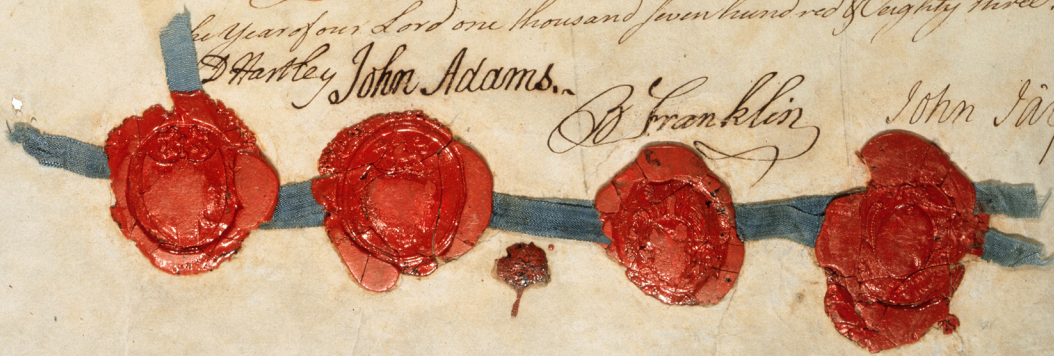 the Year of our Lord one thousand seven hundred & eighty three
D Hartley John Adams. B Franklin John Jay